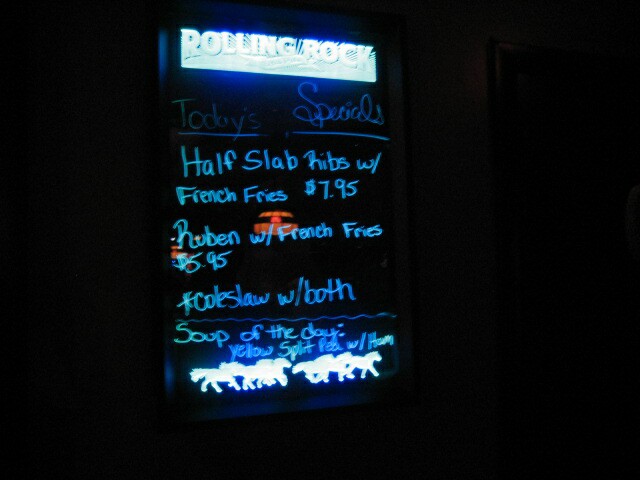 ROLLING ROCK
Today's Specials
Half Slab Ribs w/
French Fries $7.95
Ruben w/ French Fries
$5.95
*coleslaw w/both
Soup of the day:
Yellow Split Pea w/ Ham